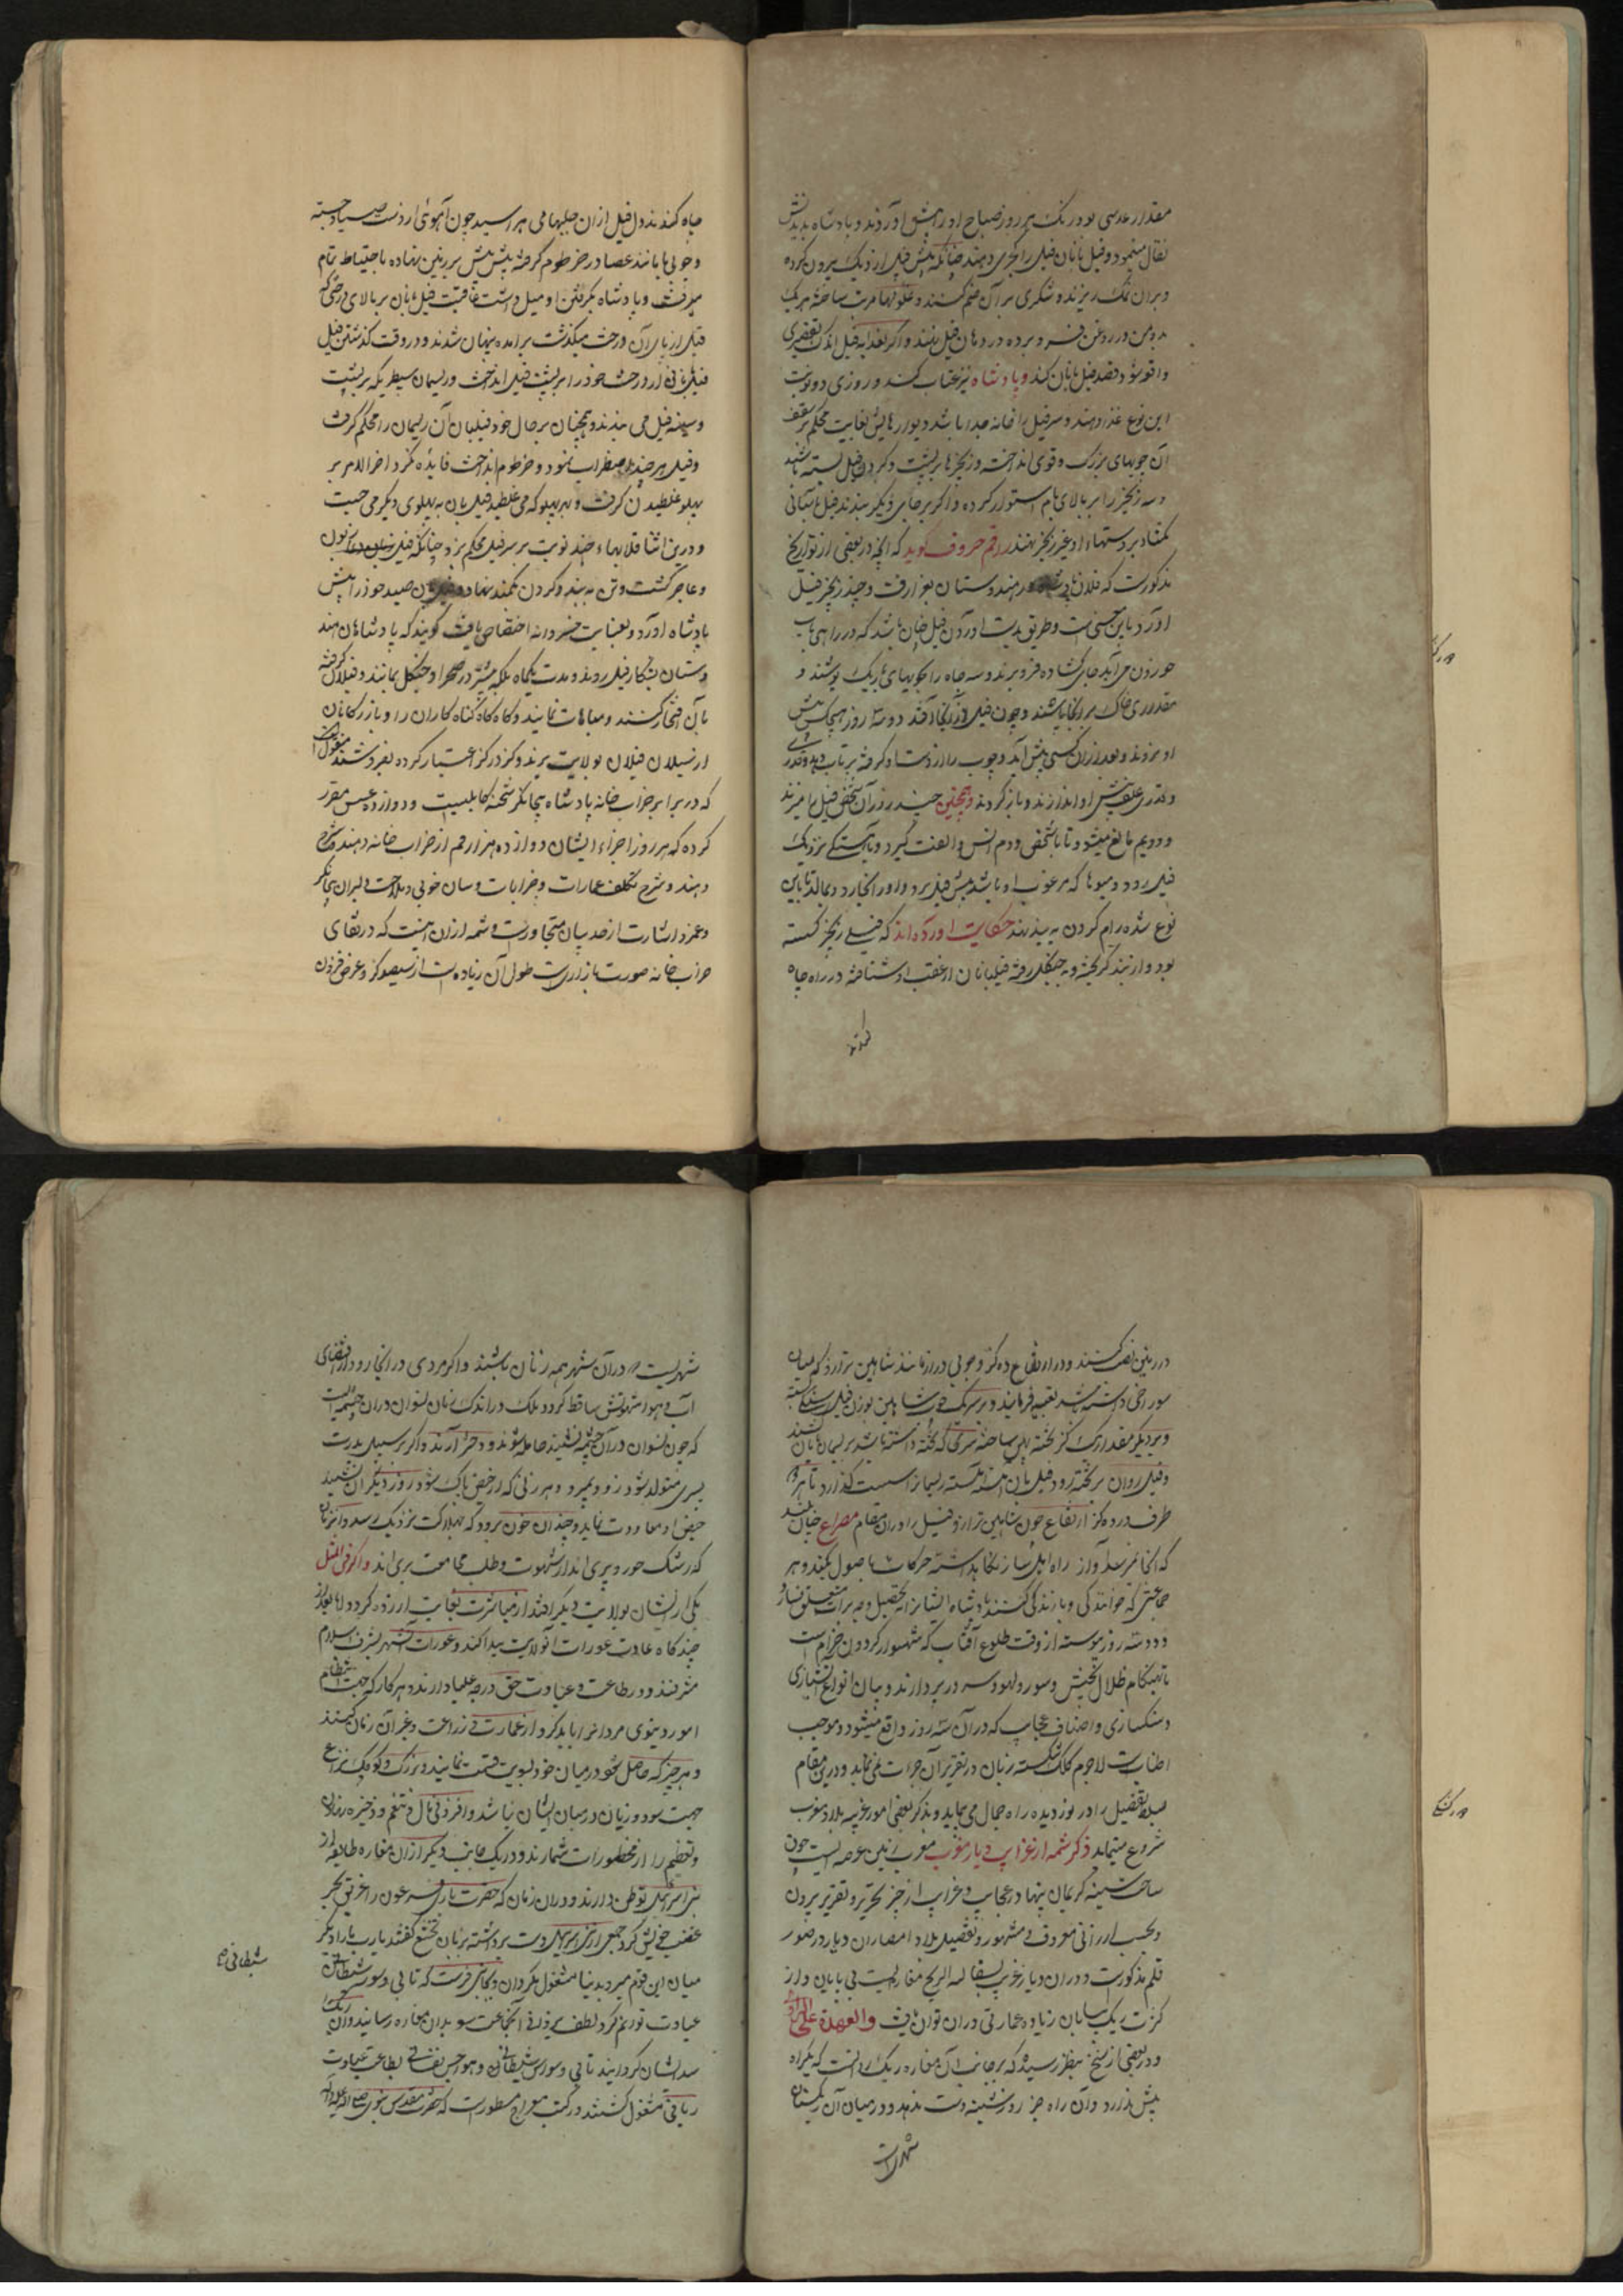 مقدار عدسی بود در نک هر روز صباح او را پیش آوردند و پادشاه بدیدنش
تفال مینمود و فیل بانان فیل را کجری دهند چنانکه پیش فیل از دیک بیرون کرده
و بر آن نمک ریزند و شکری بر آن ضم کنند و غلولها مرتب ساخته هر یک
دو من در روغن فرو برده در دهان فیل نهند و اگر بغذای فیل اندک تقصیری
واقع شود قصد فیل بانان کند و پادشاه نیز عتاب کند و روزی دو نوبت
این نوع غذا دهند و هر فیل را خانه جدا باشد دیوارهایش بغایت محکم بر سقف
آن چوبهای بزرگ و قوی انداخته و زنجیرها بر پشت و کردن فیل بسته باشند
و سر زنجیر را بر بالای بام استوار کرده و اگر بر جای دیگر بندند فیل باسانی
بکشاید و دستهاء او را نیز زنجیر نهند راقم حروف گوید که آنچه در بعضی از تواریخ
مذکورست که فلان پادشاه در هندوستان بغزا رفت و چند زنجیر فیل
آورد باین معنی است و طریق بدست آوردن فیل چنان باشد که در راهی که بآب
خوردن می آید چاهی کشاده فرو برند و سر چاه را بچوبهای باریک پوشند و
مقداری خاک بر آنجا پاشند و چون فیل در آنجا افتد دو سه روز هیچکس پیش
او نرود و بعد از آن کسی پیش آید و چوب را از دست او گرفته پرتاب دهد و قدری
و قدری علف پیش او اندازند و باز گردند و همچنین چند روز آن شخص فیل را میزند
و دویم مانع میشود تا با شخص دوم انس و الفت گیرد و بآهستگی نزدیک
فیل رود و میوها که مرغوب او باشد پیش فیل برد و او را بخارد و بمالد تا باین
نوع شده رام گردن به بند نهد حکایت آورده اند که فیلی زنجیر گسسته
بود و از بند گریخته و به جنگل رفته فیلبانان از عقب او شتافته در راه چاه
کندند
چاه کندند دل فیل از آن حیلها می هراسید چون آهوئی از دست صیاد جسته
و چوبی را مانند عصا در خرطوم گرفته پیش پیش بر زمین نهاده باحتیاط تمام
میرفت و پادشاه بگرفتن او میل داشت عاقبت فیل بانان بر بالای درختی که
فیل از پای آن درخت میگذشت بر آمده پنهان شدند و در وقت گذشتن فیل
فیلبانی از درخت خود را بر پشت فیل انداخت و ریسمان سطبر که بر پشت
و سینه فیل می بندند و همچنان بر حال خود فیلبان آن ریسمان را محکم گرفت
و فیل هر چند اضطراب نمود و خرطوم انداخت فایده نکرد آخر الامر بر
پهلو غلطیدن گرفت و بهر پهلو که می غلطید فیل بان به پهلوی دیگر می جست
و درین اثنا قلابهاء چند نوبت بر سر فیل محکم بزد چنانکه فیل زبون
و عاجز گشت و تن به بند و گردن بکمند نهاد و فیلبان صید خود را پیش
پادشاه آورد و بعنایت خسروانه اختصاص یافت گویند که پادشاهان هند
وستان بشکار فیل روند و مدت یکماه بلکه بیشتر در صحرا و جنگل بمانند و فیلان گرفته
بآن افتخار کنند و مباهات نمایند و گاه گاه گناه کاران را و بازرگانان
از سیلان فیلان بولایت برند و گز در گز اعتبار کرده بفروشند منقول است
که در برابر ضراب خانه پادشاه بیجانگر شحنه کابلیست و دوازده عسس مقرر
کرده که هر روز اجراء ایشان دوازده هزار قم از خراب خانه دهند شرح
دهند و شرح تکلف عمارات و خرابات و سان خوبی و ملاحت دلبران بیجانگر
و غمزه و اشارت از حد بیان متجاوزست و شمه از آن اینست که در قفای
ضراب خانه صورت بازاریست طول آن زیاده است از سیصد گز و عرض افزون
در زمین نصب کنند و در ارتفاع ده گز و چوبی دراز مانند شاهین ترازو که میان
سوراخی داشته باشد تعبیه فرمایند و بر سر یک چوب شاهین بوزن فیل سنگی بسته
و بر دیگر مقدار یک گز تخته پهن ساخته سر آن که تخته داشته باشد بریسمان بان کشند
و فیل روان بر تخته رود فیل بان آهسته آهسته ریسمانرا سست گذارد تا هر دو
طرف در ده گز ارتفاع چون شاهین ترازو فیل را در آن مقام مصراع خیال کند
که آنجا نرسد آواز راه اهل ساز نگاه داشته حرکات باصول میکند و هر
جماعتی که خوانندگی و سازندگی کنند پادشاه ایشانرا به تحصیل وجه برات متعلق نساز
دو سه روز پیوسته از وقت طلوع آفتاب که شهسوار گردون خرام است
تا بهنگام ظلال بعیش و سور و لهو و سرور بردارند و بیان انواع آتشبازی
و سنگسازی و اصناف عجایب که در آن سه روز واقع میشود موجب
اطنابست لاجرم کلک شکسته زبان در تقریر آن جرات نمی نماید و درین مقام
بساط تفصیل را در نوردیده راه اجمال می پیماید و بذکر بعضی امور غریبه بلاد مغرب
شروع مینماید ذکر شمه از غرایب دیار مغرب مغرب زمین عرصه ایست چون
ساحت سینه کریمان پنهاور عجایب و غرایب از حیز تحریر و تقریر بیرون
و بحسب ارزانی معروف و مشهور و تفصیل بلاد امصار آن دیار در صور
قلم مذکورست و در آن دیار غریب بشقاله الریح مغاره ایست بی پایان و از
کثرت ریک بیابان زیاده عمارتی در آن نتوان یافت والعهدة علی الراوی
و در بعضی از نسخ بنظر رسیده که بر جانب آن مغاره ریک روانست که یک راه
پیش ندارد و آن راه جز روز شنبه دست ندهد و در میان آن ریکستان
شهریست
شهریست و در آن شهر همه زنان باشند و اگر مردی در آنجا رود از اقتضای
آب و هوا شهوتش ساقط گردد بلک در اندک زمان نسوان در آن چشمه ایست
که چون نسوان در آن چشمه نشینند حامله شوند و دختر آرند و اگر بر سبیل ندرت
پسری متولد شود زود بمیرد و هر زنی که از حیض پاک شود روز دیگر آن نشیند
حیض او معاودت نماید و چندان خون برود که بهلاکت نزدیک رسد و آن زنان
که رشک حور و پری اند از شهوت و طلب مجامعت بری اند و اگر فی المثل
یکی از ایشان بولایت دیگر افتد از مباشرت بغایت آزرده گردد و اما بعد از
چند گاه عادت عورات آن ولایت پیدا کند و عورات آن شهر بشرف اسلام
مشرفند و در طاعت و عبادت حق درجه علیا دارند و هر کار که جهت انتظام
امور دنیوی مردانرا باید کرد از عمارت و زراعت و غیر آن زنان کنند
و هر چیز که حاصل شود در میان خود بسویت قسمت نمایند و بزرگ و کوچک نزاع
جهت سود و زیان در میان ایشان نباشد و افزونی مال و تنعم و ذخیره نهادن
و تعظیم را از محظورات شمارند و در یک جانب دیگر از آن مغاره طایفه از
بنی اسرائیل توطن دارند و در آن زمان که حضرت باری فرعون را غریق بحر
غضب خویش کرد جمعی از بنی اسرائیل دست برداشته بزبان تخشع گفتند یارب ما را دیگر
میان این قوم مبر و بدنیا مشغول مگردان و بجایی فرست که تا بی وسوسه شیطان
عبادت تو توانیم کرد لطف یزدانی آنجماعت را بدان مغاره رسانید و آن ریک
سد ایشان گردانید تا بی وسواس شیطانی و هواجس نفسانی بطاعت و عبادت
ربانی مشغول گشتند در کتب معراج مسطورست که حضرت مقدس نبوی صلی الله علیه و آله
شیطانی